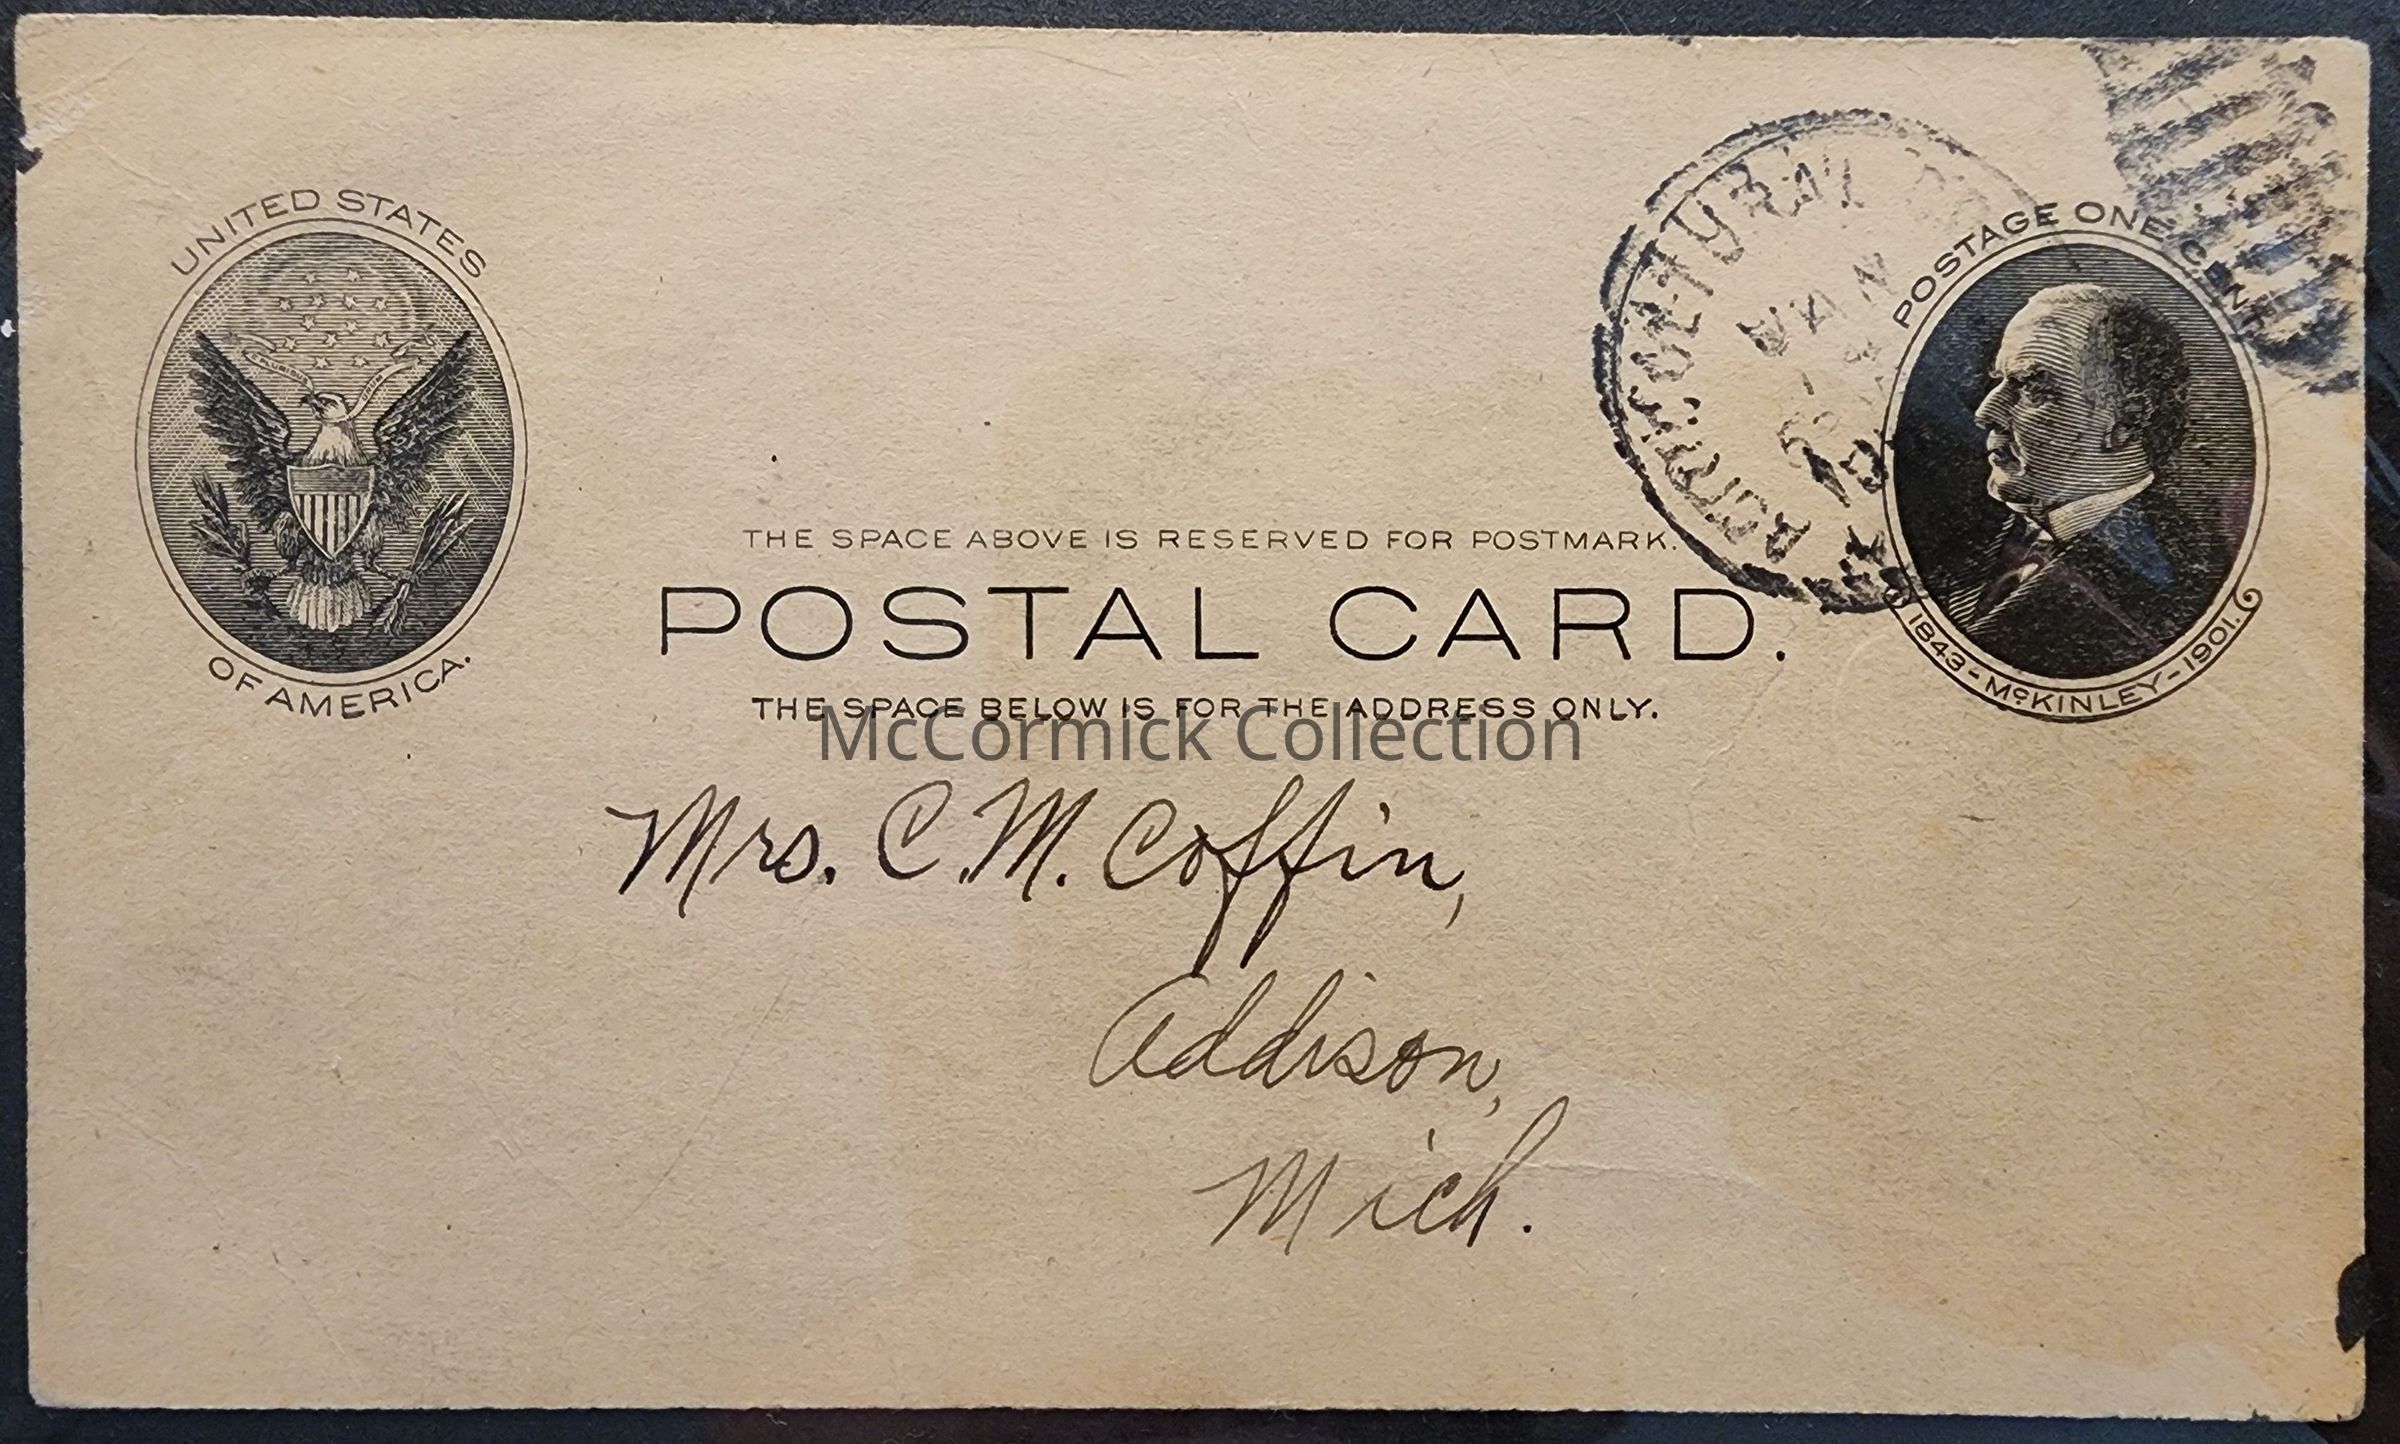 UNITED STATES
E PLURIBUS UNUM
OF AMERICA.
POSTAGE ONE CENT
1843-McKINLEY-1901.
THE SPACE ABOVE IS RESERVED FOR POSTMARK.
POSTAL CARD.
THE SPACE BELOW IS FOR THE ADDRESS ONLY.
McCormick Collection
Mrs. C. M. Coffin,
Addison,
Mich.